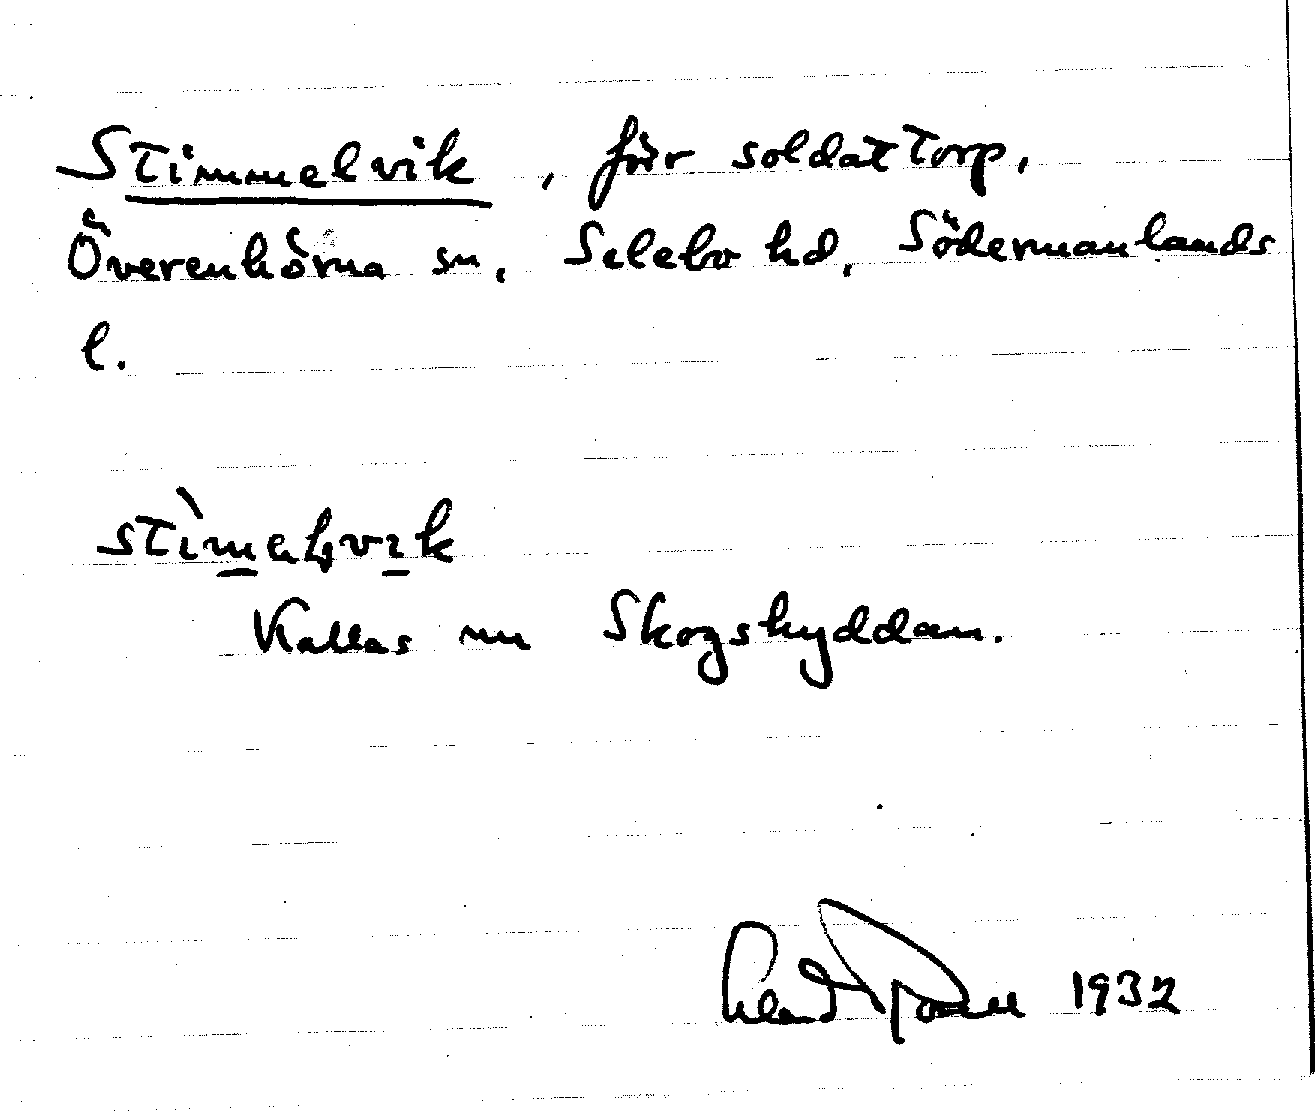 Stimmelvik, förr soldattorp,
Överenhörna sn, Selebo hd, Södermanlands
l.
Kallas nu Skogshyddan.
1932